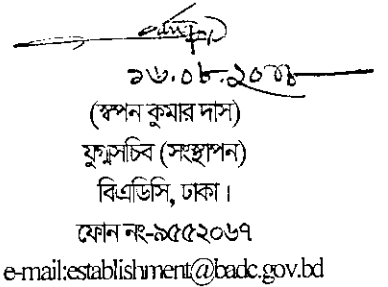 (স্বপন কুমার দাস)
যুগ্মসচিব (সংস্থাপন)
বিএডিসি, ঢাকা।
ফোন নং-৯৫৫২০৬৭
e-mail:establishment@badc.gov.bd